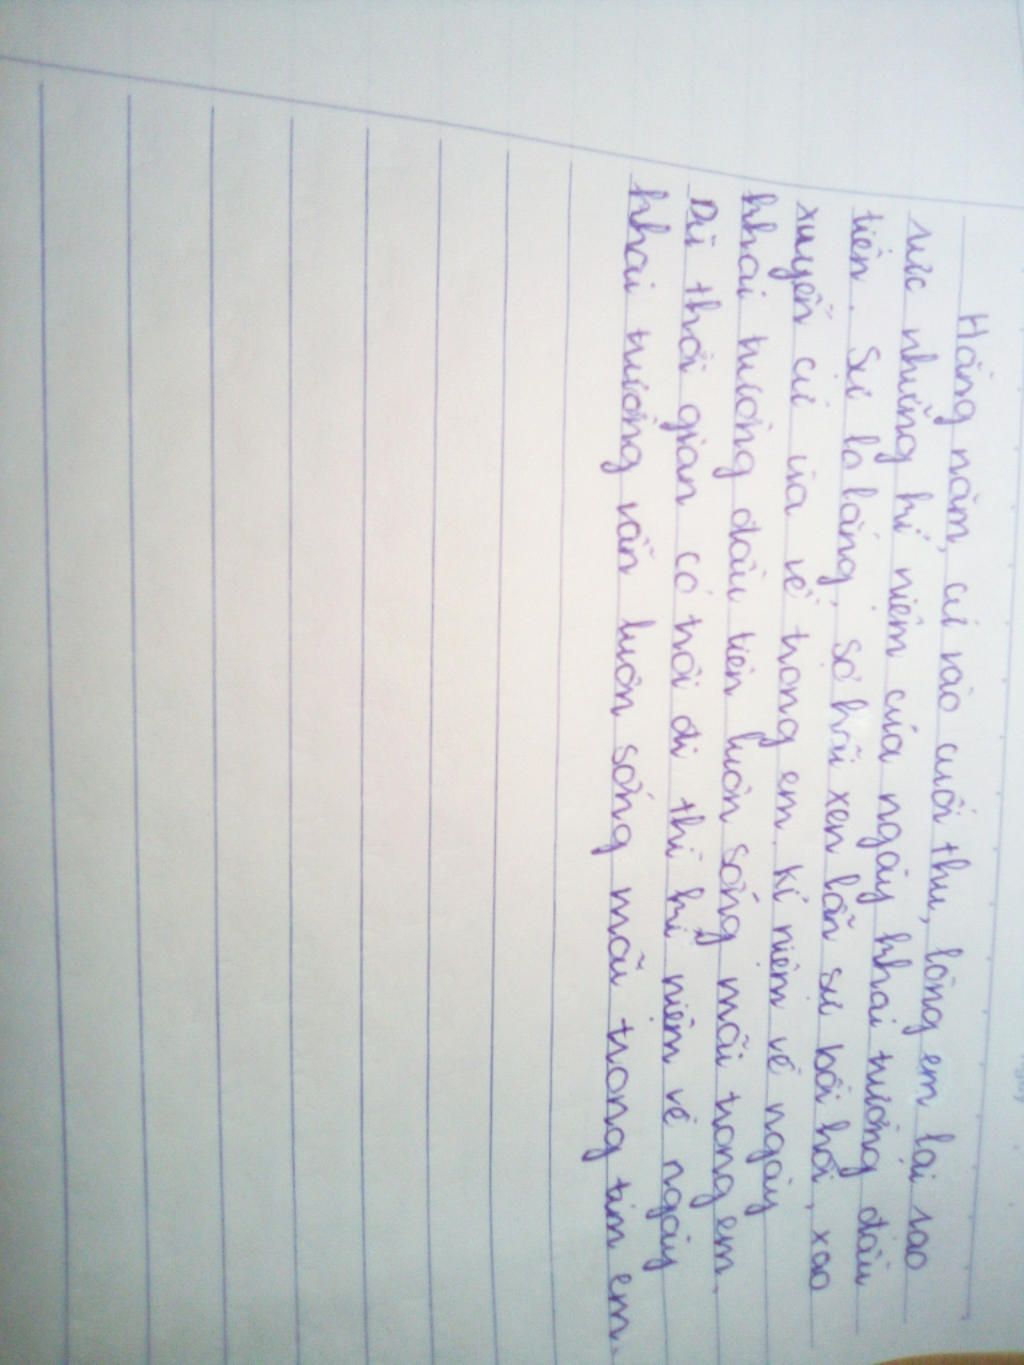 Hàng năm, cứ vào cuối thu, lòng em lại nao
nức những kỉ niệm của ngày khai trường đầu
tiên. Sự lo lắng, sợ hãi xen lẫn sự bồi hồi, xao
xuyến cứ ùa về trong em. Kỉ niệm về ngày
khai trường đầu tiên luôn sống mãi trong em.
Dù thời gian có trôi đi thì kỉ niệm về ngày
khai trường vẫn luôn sống mãi trong tim em.